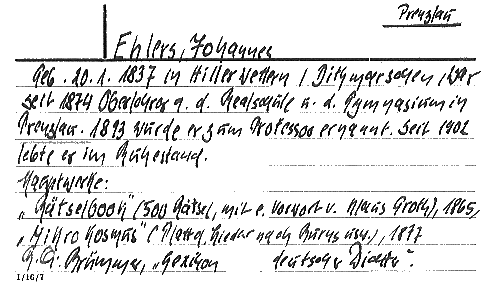 Prenzlau
Ehlers, Johannes
Geb. 20.1.1837 in Hillerwettern / Dithmarschen, war
seit 1874 Oberlehrer a. d. Realschule u. d. Gymnasium in
Prenzlau. 1893 wurde er zum Professor ernannt. Seit 1902
lebte er im Ruhestand.
Hauptwerke:
"Rätselbook" (500 Rätsel, mit e. Vorwort v. Klaus Groth), 1865,
"Mikrokosmus" (Plattd. Lieder nach Burns usw.), 1877
Brümmer, "Lexikon deutscher Dichter".
1/16/7